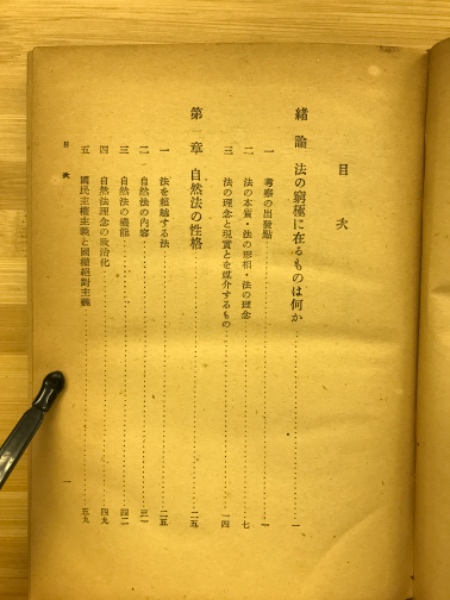 目次
緒論 法の窮極に在るものは何か……一
一 考察の出發點……一
二 法の本質・法の形相・法の理念……七
三 法の理念と現實とを媒介するもの……一四
第一章 自然法の性格……二五
一 法を超越する法……二五
二 自然法の內容……三一
三 自然法の機能……四二
四 自然法理念の政治化……四九
五 國民主權主義と國權絕對主義……五九
目次
一